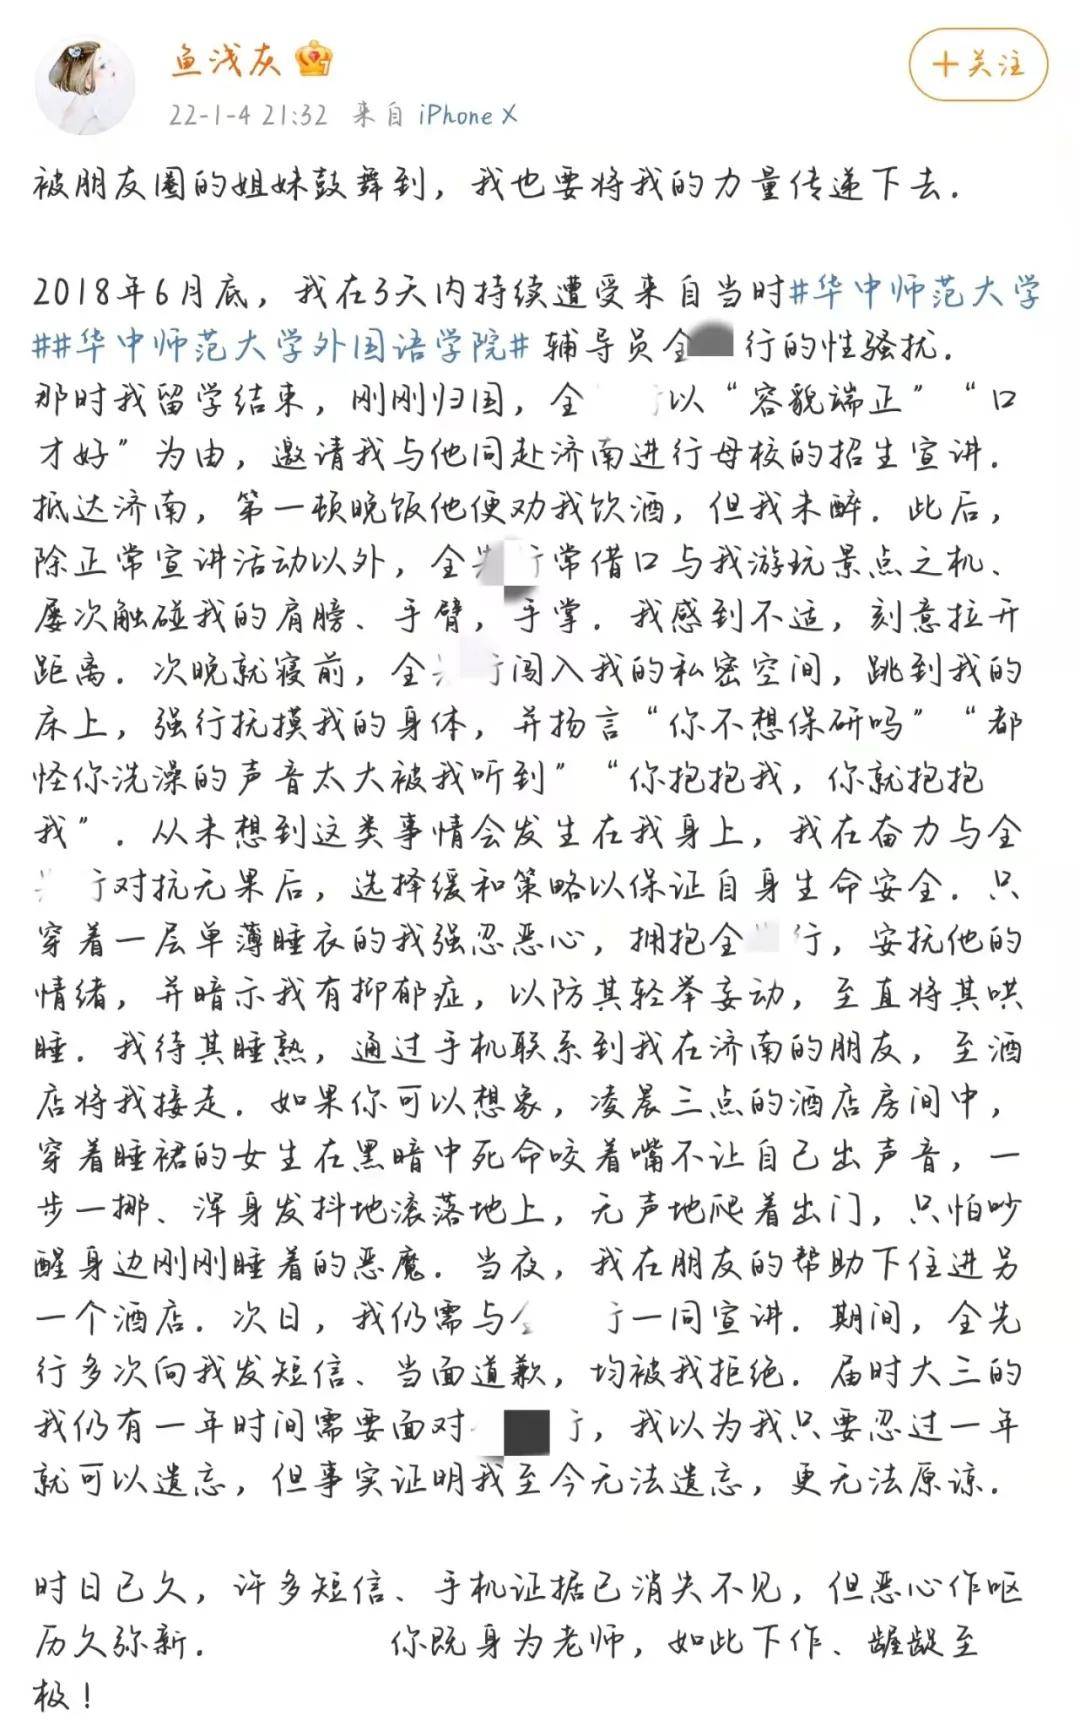 鱼浅灰
+关注
22-1-4 21:32 来自 iPhone X
被朋友圈的姐妹鼓舞到，我也要将我的力量传递下去.
2018年6月底，我在3天内持续遭受来自当时#华中师范大学
##华中师范大学外国语学院# 辅导员全 行的性骚扰.
那时我留学结束，刚刚归国，全 行以“容貌端正”“口
才好”为由，邀请我与他同赴济南进行母校的招生宣讲.
抵达济南，第一顿晚饭他便劝我饮酒，但我未醉. 此后，
除正常宣讲活动以外，全 行常借口与我游玩景点之机、
屡次触碰我的肩膀、手臂，手掌. 我感到不适，刻意拉开
距离. 次晚就寝前，全 行闯入我的私密空间，跳到我的
床上，强行抚摸我的身体，并扬言“你不想保研吗”“都
怪你洗澡的声音太大被我听到”“你抱抱我，你就抱抱
我”. 从未想到这类事情会发生在我身上，我在奋力与全
行对抗无果后，选择缓和策略以保证自身生命安全. 只
穿着一层单薄睡衣的我强忍恶心，拥抱全 行，安抚他的
情绪，并暗示我有抑郁症，以防其轻举妄动，至直将其哄
睡. 我待其睡熟，通过手机联系到我在济南的朋友，至酒
店将我接走. 如果你可以想象，凌晨三点的酒店房间中，
穿着睡裙的女生在黑暗中死命咬着嘴不让自己出声音，一
步一挪、浑身发抖地滚落地上，无声地爬着出门，只怕吵
醒身边刚刚睡着的恶魔. 当夜，我在朋友的帮助下住进另
一个酒店. 次日，我仍需与全 行一同宣讲. 期间，全先
行多次向我发短信、当面道歉，均被我拒绝. 届时大三的
我仍有一年时间需要面对 行，我以为我只要忍过一年
就可以遗忘，但事实证明我至今无法遗忘，更无法原谅.
时日已久，许多短信、手机证据已消失不见，但恶心作呕
历久弥新. 你既身为老师，如此下作、龌龊至
极！